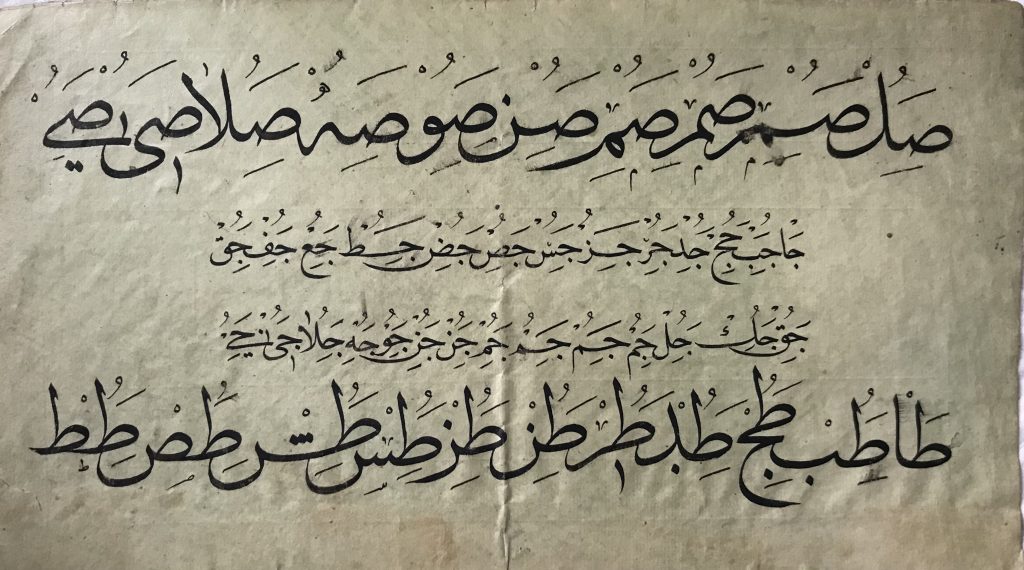 صل صم صم صم صن صو صه صلا صى صے
جا جب جج جد جر جر جس جص جض جط جع جف جق
جق جك جل جم جم جم جن جن جو جه جلا جى جے
طا طب طج طد طر طن طر طس طس طص طط